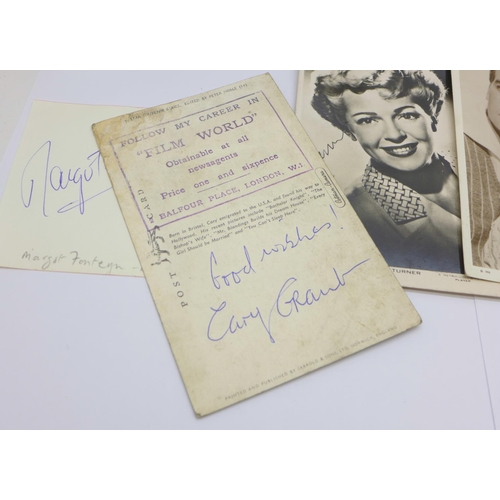 Margot
Margot Fonteyn
FOLLOW MY CAREER IN
"FILM WORLD"
Obtainable at all
newsagents
Price one and sixpence
BALFOUR PLACE, LONDON, W.1
POST CARD
Born in Bristol, Cary emigrated to the U.S.A. and found his way to
Hollywood. His recent pictures include "Bachelor Knight" "The
Bishop's Wife" "Mr. Blandings Builds his Dream House" "Every
Girl Should be Married" and "You Can't Sleep Here"
Good wishes!
Cary Grant
TURNER